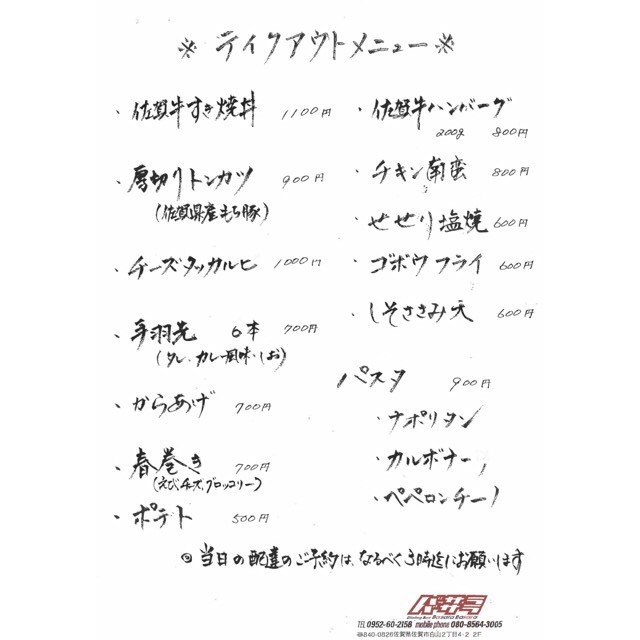 ※ テイクアウトメニュー ※
・佐賀牛すき焼丼 1100円
・厚切りトンカツ 900円
(佐賀県産もち豚)
・チーズタッカルビ 1000円
・手羽先 6本 700円
(タレ・カレー風味・しお)
・からあげ 700円
・春巻き 700円
(えび チーズ ブロッコリー)
・ポテト 500円
・佐賀牛ハンバーグ
200g 800円
・チキン南蛮 800円
・せせり塩焼 600円
・ゴボウフライ 600円
・しそささみ天 600円
パスタ 900円
・ナポリタン
・カルボナーラ
・ペペロンチーノ
◎当日の配達のご予約は、なるべく3時迄にお願います
TEL 0952-60-2158 mobile phone 080-8564-3005
〠840-0826佐賀県佐賀市白山2丁目4-2 2F